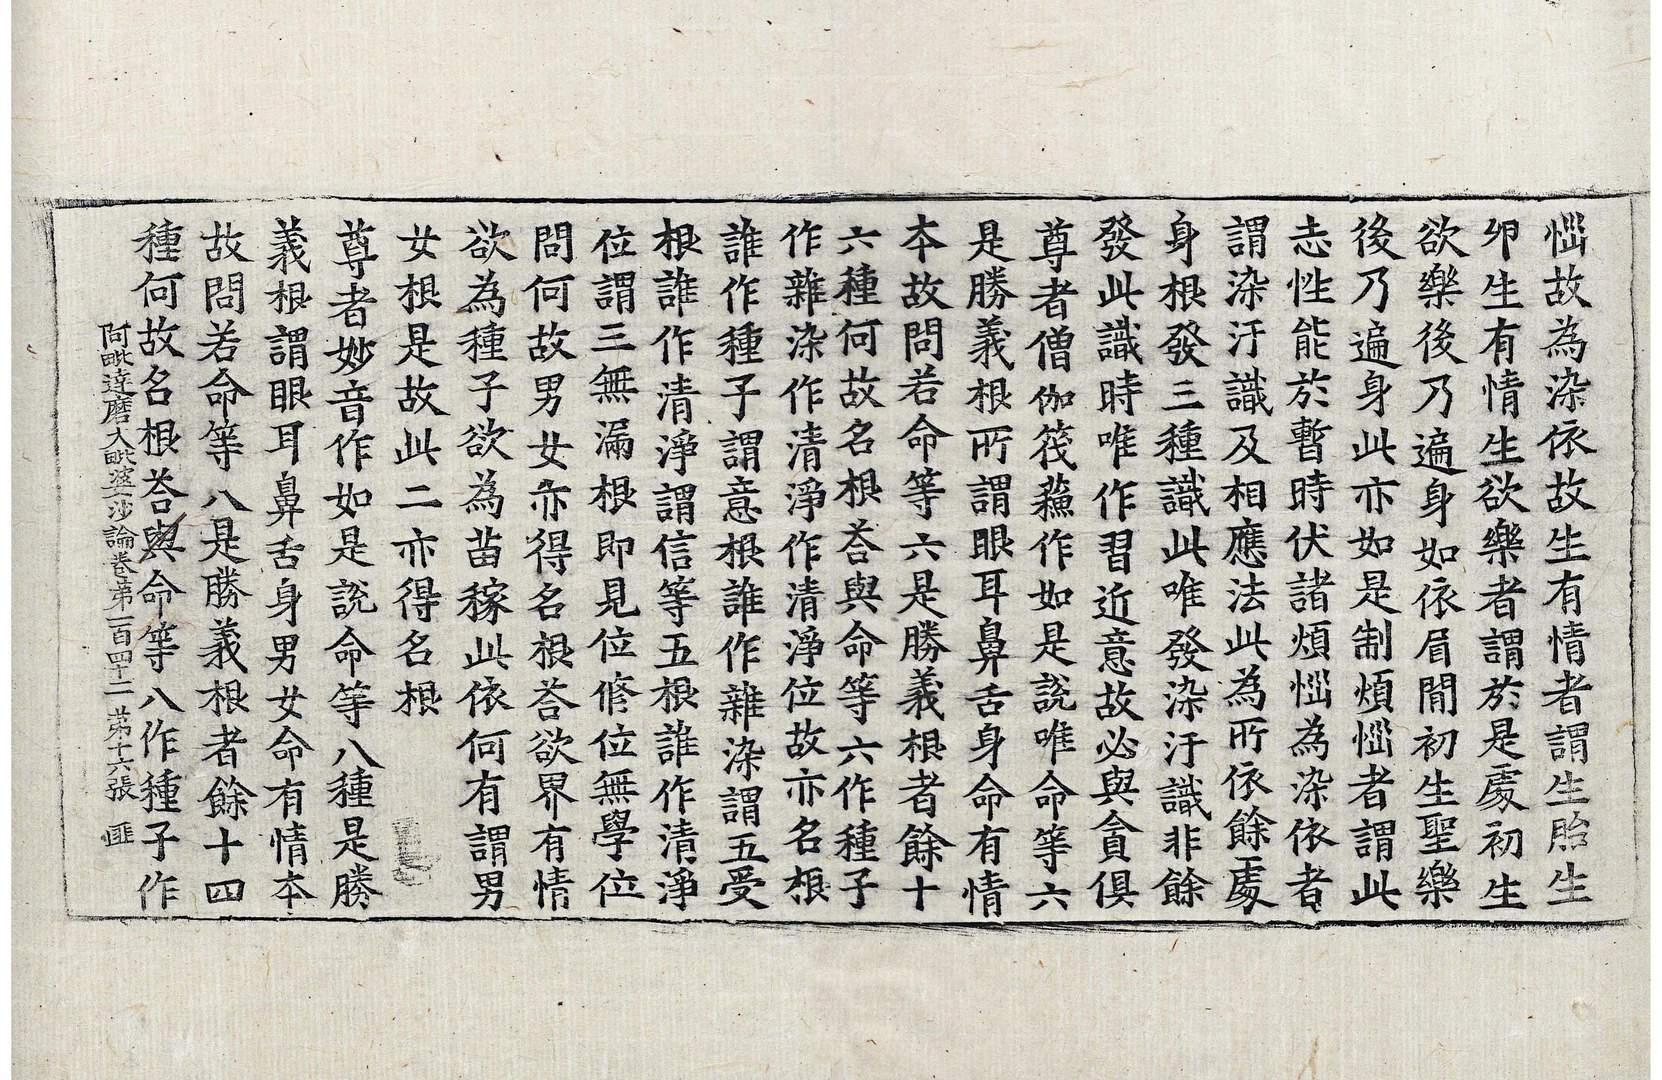 惱故為染依故生有情者謂生胎生
卵生有情生欲樂者謂於是處初生
欲樂後乃遍身如依眉間初生聖樂
後乃遍身此亦如是制煩惱者謂此
志性能於暫時伏諸煩惱為染依者
謂染汙識及相應法此為所依餘處
身根發三種識此唯發染汙識非餘
發此識時唯作習近意故必與貪俱
尊者僧伽筏蘇作如是說唯命等六
是勝義根所謂眼耳鼻舌身命有情
本故問若命等六是勝義根者餘十
六種何故名根荅與命等六作種子
作雜染作清淨作清淨位故亦名根
誰作種子謂意根誰作雜染謂五受
根誰作清淨謂信等五根誰作清淨
位謂三無漏根即見位修位無學位
問何故男女亦得名根荅欲界有情
欲為種子欲為苗稼此依何有謂男
女根是故此二亦得名根
尊者妙音作如是說命等八種是勝
義根謂眼耳鼻舌身男女命有情本
故問若命等八是勝義根者餘十四
種何故名根荅與命等八作種子作
阿毗達磨大毗婆沙論卷苐一百四十二 苐十六張 匪